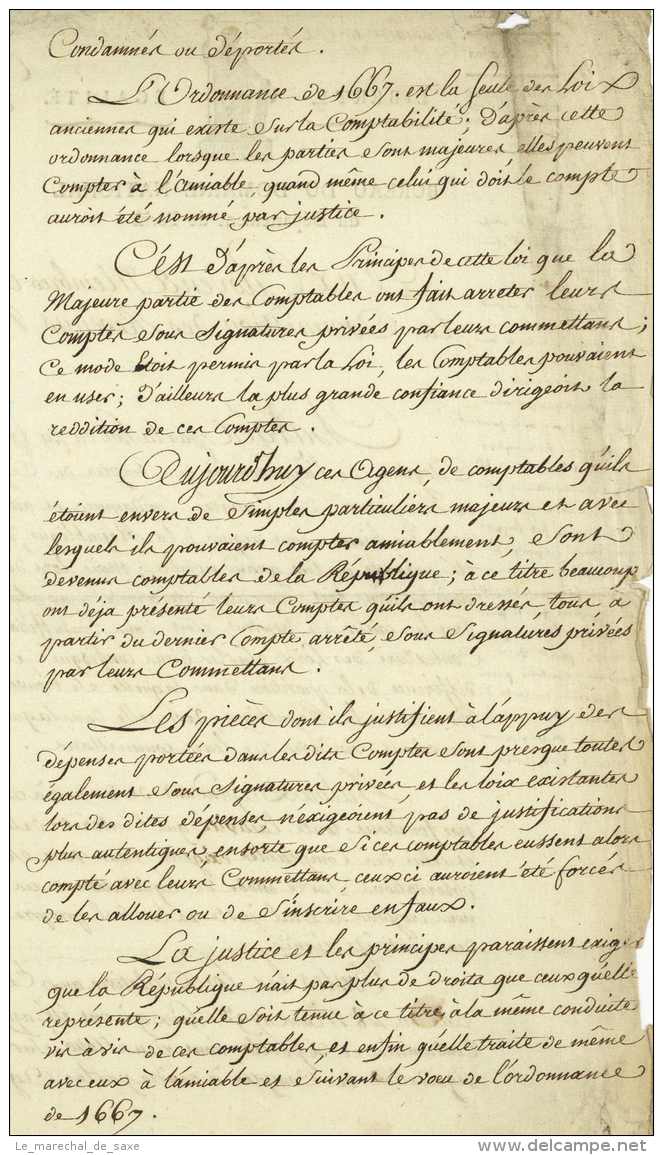 Condamnés ou déportés.
L'Ordonnance de 1667. est la seule des Loix
anciennes qui existe sur la Comptabilité; D'après cette
ordonnance lorsque les parties sont majeures, elles peuvent
Compter à l'amiable, quand même celui qui doit le compte
auroit été nommé par justice.
C'est D'après les Principes de cette loi que la
Majeure partie des Comptables ont fait arreter leurs
Comptes sous signatures privées par leurs commettans;
Ce mode étoit permis par la Loi, les Comptables pouvaient
en user; D'ailleurs la plus grande confiance dirigeoit la
reddition de ces Comptes.
Aujourd'huy ces Agens, de comptables qu'ils
étoient envers de simples particuliers majeurs et avec
lesquels ils pouvaient compter amiablement, sont
devenus comptables de la République; à ce titre beaucoup
ont déja présenté leurs Comptes qu'ils ont dressés, tous, à
partir du dernier Compte arrêté, sous signatures privées
par leurs Commettans.
Les pièces dont ils justifient à l'appuy des
dépenses portées dans les dits Comptes sont presque toutes
également sous signatures privées, et les loix existantes
lors des dites dépenses, n'éxigeoient pas de justifications
plus autentiques, ensorte que si ces comptables eussent alors
compté avec leurs Commettans, ceux ci auroient été forcés
de les allouer ou de s'inscrire en faux.
La justice et les principes paraissent exiger
que la République n'ait pas plus de droits que ceux qu'elle
représente; qu'elle soit tenue à ce titre, à la même conduite
vis à vis de ces comptables, et enfin qu'elle traite de même
avec eux à l'amiable et suivant le voeu de l'ordonnance
de 1667.
Le_marechal_de_saxe
delcampe.net